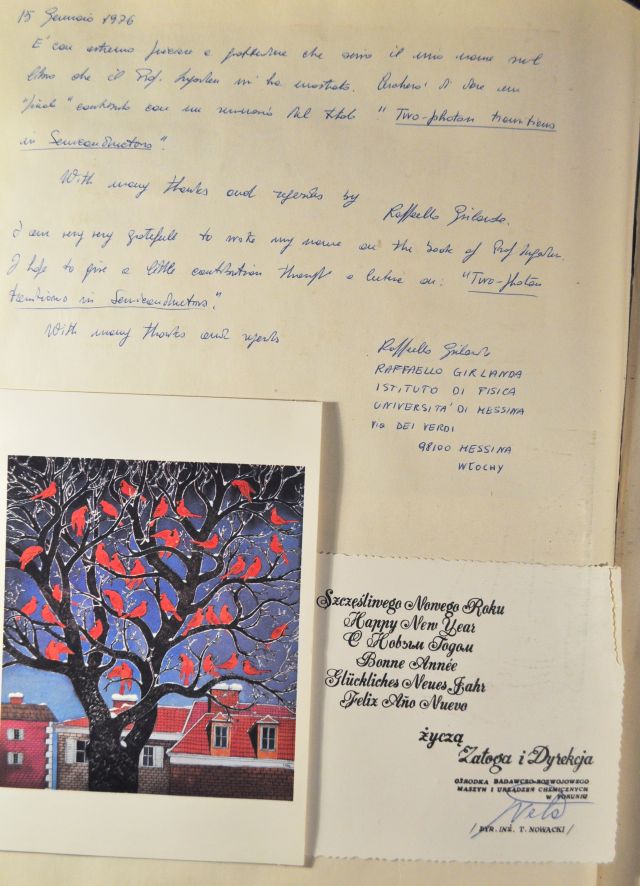 15 Gennaio 1976
E' con estremo piacere e che il mio nome sul
libro che il Prof. Ingarden mi ha mostrato. di dare un
"piccolo" contributo con un seminario dal titolo "Two-photon transitions
in Semiconductors".
With many thanks and regards by
Raffaello Girlanda.
I am very very gratefull to write my name on the book of Prof. Ingarden.
I hope to give a little contribution through a lecture on: "Two-photon
transitions in Semiconductors".
With many thanks and regards
Raffaello Girlanda
RAFFAELLO GIRLANDA
ISTITUTO DI FISICA
UNIVERSITA' DI MESSINA
Via DEI VERDI
98100 MESSINA
WŁOCHY
Szczęśliwego Nowego Roku
Happy New Year
С Новым Годом
Bonne Année
Glückliches Neues Jahr
Feliz Año Nuevo
życzą
Załoga i Dyrekcja
OŚRODKA BADAWCZO-ROZWOJOWEGO
MASZYN I URZĄDZEŃ CHEMICZNYCH
W TORUNIU
/DYR. INŻ. T. NOWACKI/